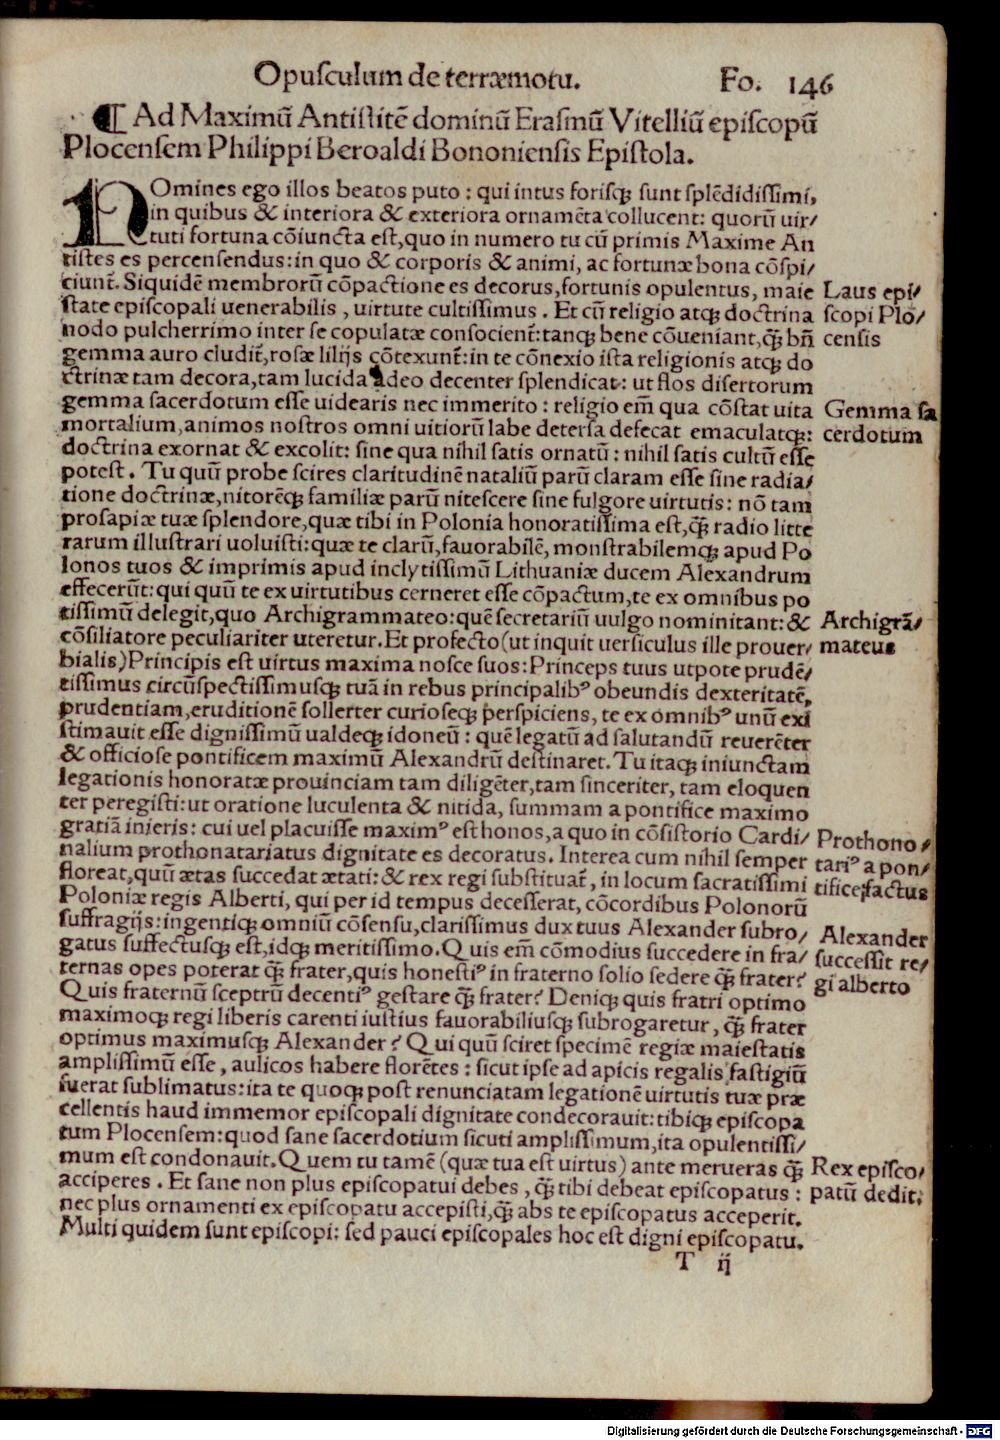 Opusculum de terræmotu. Fo. 146
¶ Ad Maximū Antistitē dominū Erasmū Vitelliū episcopū
Plocensem Philippi Beroaldi Bononiensis Epistola.
HOmines ego illos beatos puto : qui intus forisqꝫ sunt splēdidissimi,
in quibus & interiora & exteriora ornamēta collucent: quorū uir/
tuti fortuna cōiuncta est,quo in numero tu cū primis Maxime An
tistes es percensendus:in quo & corporis & animi, ac fortunæ bona cōspi/
ciunt̄. Siquidē membrorū cōpactione es decorus,fortunis opulentus, maie
state episcopali uenerabilis , uirtute cultissimus . Et cū religio atqꝫ doctrina
nodo pulcherrimo inter se copulatæ consocient̄:tanqꝫ bene cōueniant,qꝫ̄ bn̄
gemma auro cludit̄,rosæ lilijs cōtexunt̄:in te cōnexio ista religionis atqꝫ do
ctrinæ tam decora,tam lucida adeo decenter splendicat: ut flos disertorum
gemma sacerdotum esse uidearis nec immerito : religio em̄ qua cōstat uita
mortalium,animos nostros omni uitiorū labe detersa defecat emaculatqꝫ:
doctrina exornat & excolit: sine qua nihil satis ornatū : nihil satis cultū esse
potest . Tu quū probe scires claritudinē nataliū parū claram esse sine radia/
tione doctrinæ,nitorēqꝫ familiæ parū nitescere sine fulgore uirtutis: nō tam
prosapiæ tuæ splendore,quæ tibi in Polonia honoratissima est,qꝫ̄ radio litte
rarum illustrari uoluisti:quæ te clarū,fauorabilē, monstrabilemqꝫ apud Po
lonos tuos & imprimis apud inclytissimū Lithuaniæ ducem Alexandrum
effecerūt: qui quū te ex uirtutibus cerneret esse cōpactum,te ex omnibus po
tissimū delegit,quo Archigrammateo:quē secretariū uulgo nominitant: &
cōsiliatore peculiariter uteretur. Et profecto (ut inquit uersiculus ille prouer/
bialis)Principis est uirtus maxima nosce suos: Princeps tuus utpote prudē/
tissimus circūspectissimusqꝫ tuā in rebus principalibꝰ obeundis dexteritatē,
prudentiam,eruditionē sollerter curioseqꝫ perspiciens, te ex omnibꝰ unū exi
stimauit esse dignissimū ualdeqꝫ idoneū : quē legatū ad salutandū reuerēter
& officiose pontificem maximū Alexandrū destinaret. Tu itaqꝫ iniunctam
legationis honoratæ prouinciam tam diligēter,tam sinceriter, tam eloquen
ter peregisti: ut oratione luculenta & nitida, summam a pontifice maximo
gratiā inieris : cui uel placuisse maximꝰ est honos,a quo in cōsistorio Cardi/
nalium prothonatariatus dignitate es decoratus. Interea cum nihil semper
floreat,quū ætas succedat ætati: & rex regi substituat̄ , in locum sacratissimi
Poloniæ regis Alberti, qui per id tempus decesserat, cōcordibus Polonorū
suffragijs: ingentiqꝫ omniū cōsensu,clarissimus dux tuus Alexander subro/
gatus suffectusqꝫ est,idqꝫ meritissimo.Quis em̄ cōmodius succedere in fra/
ternas opes poterat qꝫ̄ frater,quis honestiꝰ in fraterno solio sedere qꝫ̄ frater?
Quis fraternū sceptrū decentiꝰ gestare qꝫ̄ frater? Deniqꝫ quis fratri optimo
maximoqꝫ regi liberis carenti iustius fauorabiliusqꝫ subrogaretur , qꝫ̄ frater
optimus maximusqꝫ Alexander ? Qui quū sciret specimē regiæ maiestatis
amplissimū esse , aulicos habere florētes : sicut ipse ad apicis regalis fastigiū
fuerat sublimatus: ita te quoqꝫ post renunciatam legationē uirtutis tuæ præ
cellentis haud immemor episcopali dignitate condecorauit: tibiqꝫ episcopa
tum Plocensem: quod sane sacerdotium sicuti amplissimum,ita opulentissi/
mum est condonauit.Quem tu tamē (quæ tua est uirtus) ante merueras qꝫ̄
acciperes . Et sane non plus episcopatui debes , qꝫ̄ tibi debeat episcopatus :
nec plus ornamenti ex episcopatu accepisti,qꝫ̄ abs te episcopatus acceperit.
Multi quidem sunt episcopi: sed pauci episcopales hoc est digni episcopatu.
T ij
Laus epi/
scopi Plo/
censis
Gemma sa
cerdotum
Archigrā/
mateus
Prothono/
tariꝰ a pon/
tifice factus
Alexander
successit re/
gi alberto
Rex episco/
patū dedit.
Digitalisierung gefördert durch die Deutsche Forschungsgemeinschaft - DFG